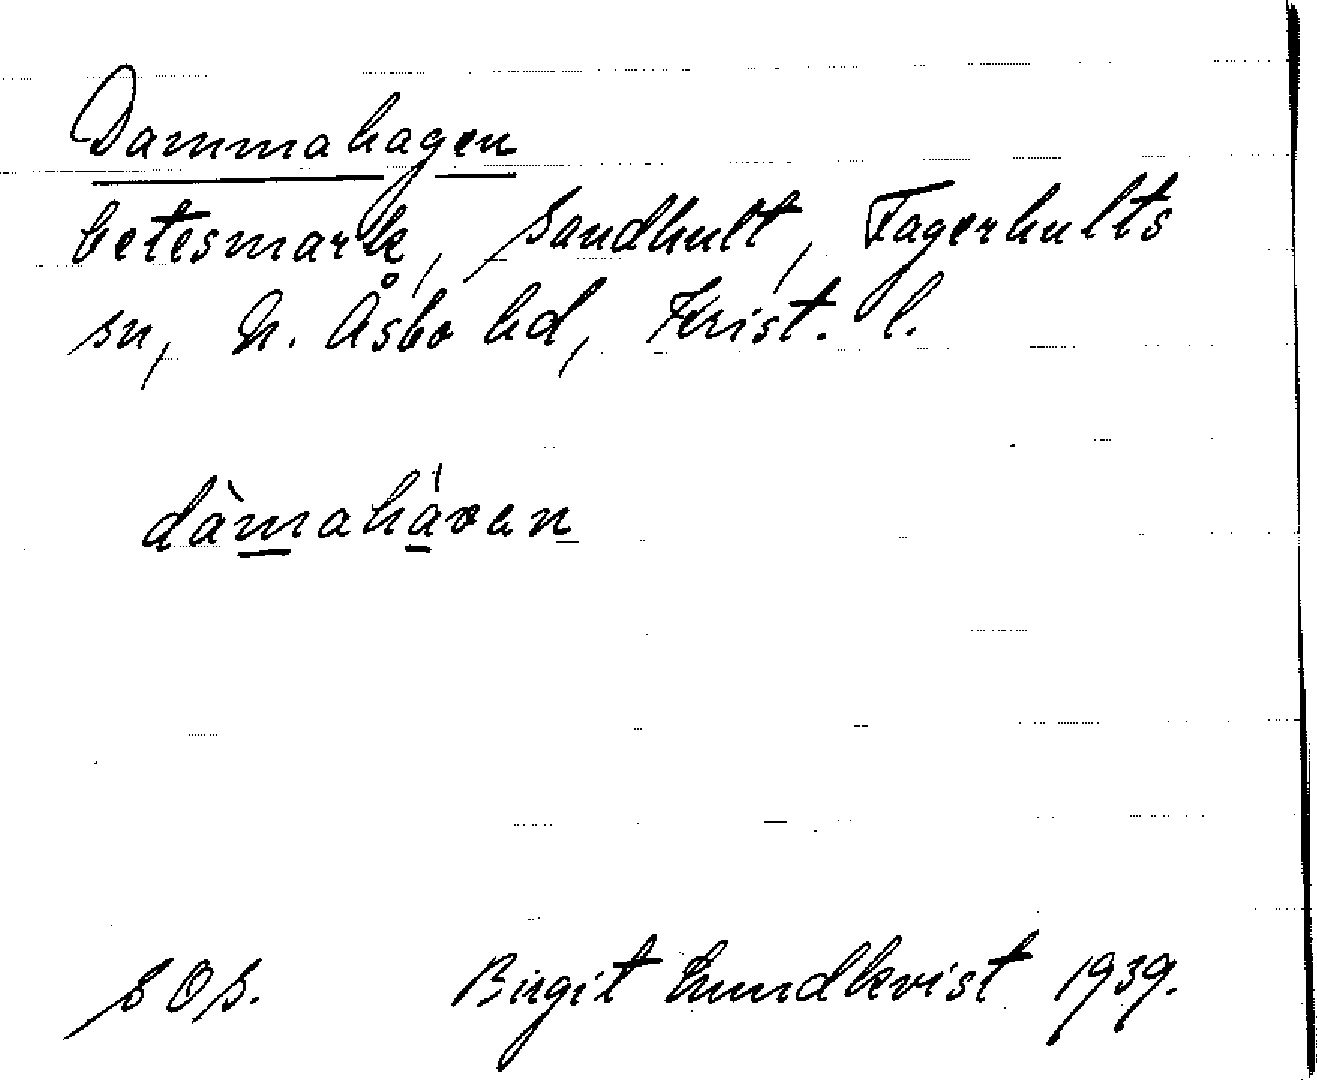 Dammahagen
betesmark, Sandhult, Fagerhults
sn, N. Åsbo hd, Krist. l.
dàmaháven
s Ö s.
Birgit Lundkvist 1939.